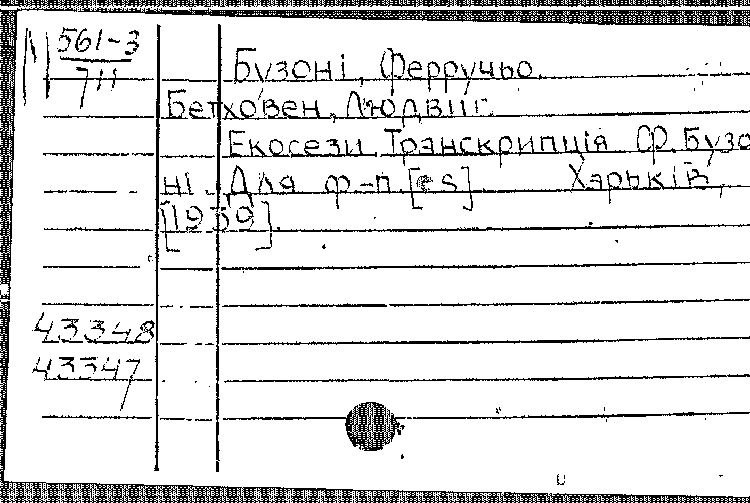 N 561-3
711
Бузоні, Ферручьо.
Бетховен, Людвіг.
Екосези. Транскрипція Ф. Бузо
ні. Для ф-п. [es] Харьків,
[1939].
43348
43347